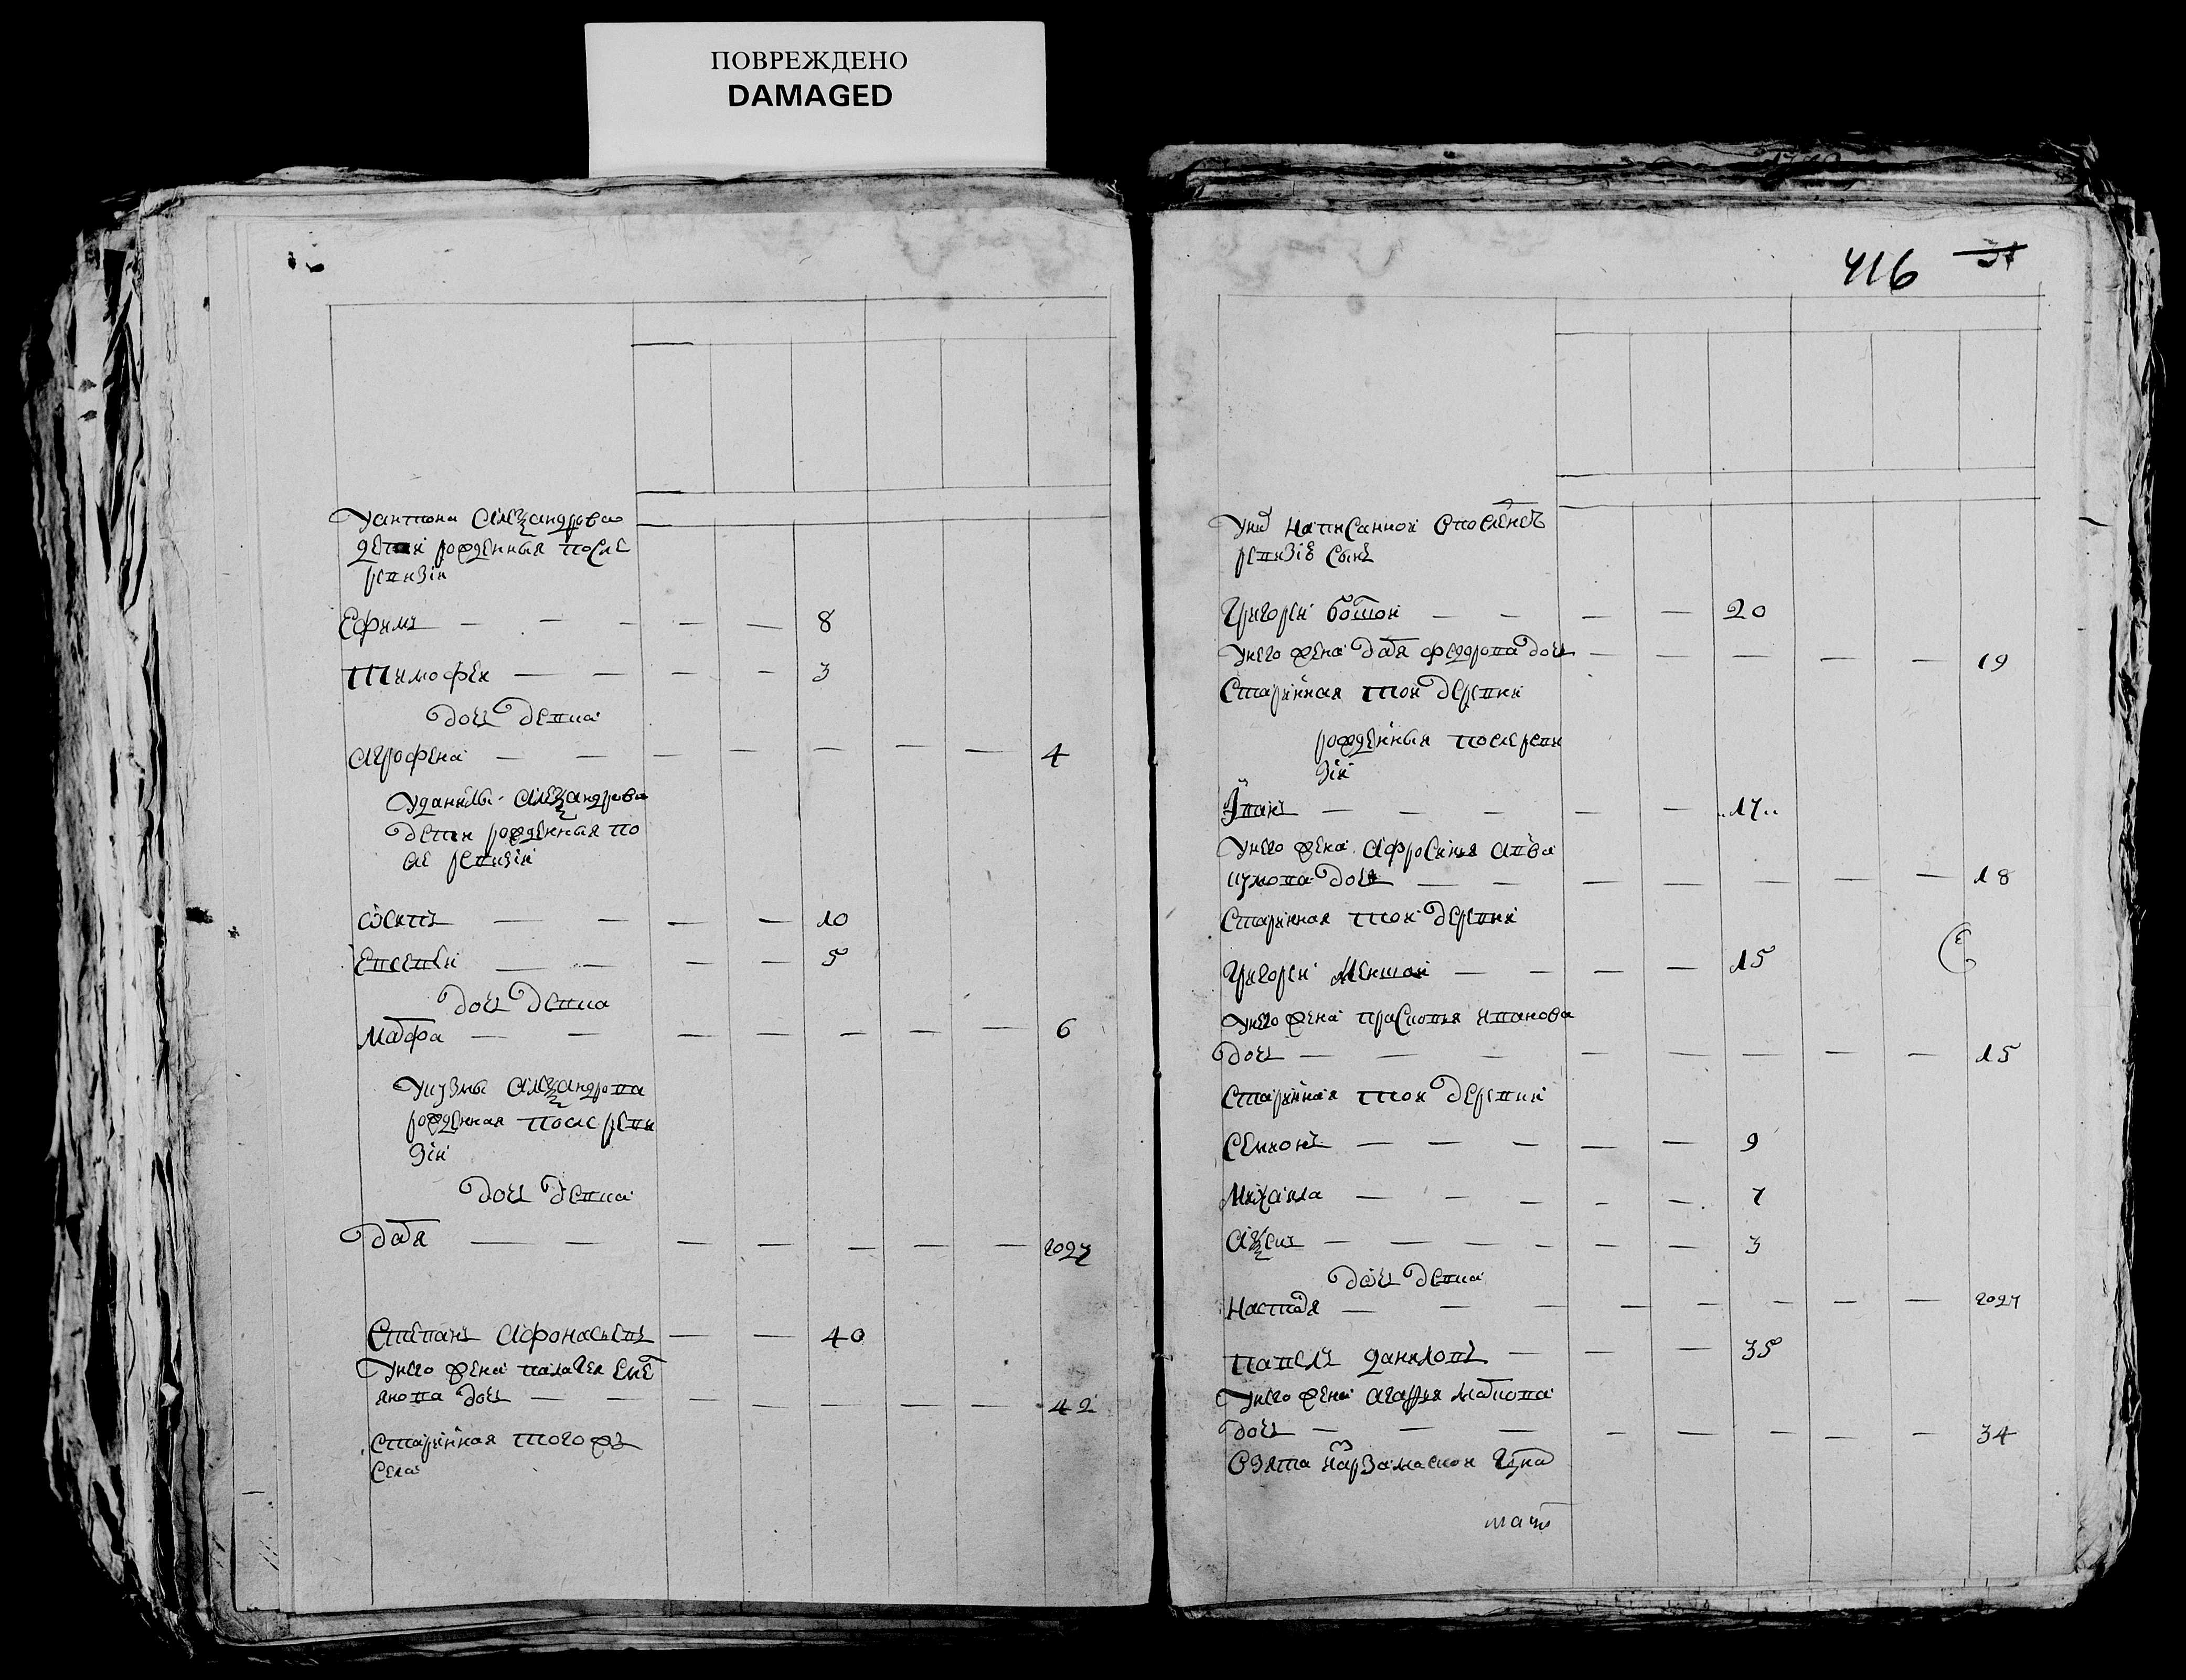 ПОВРЕЖДЕНО
DAMAGED
у антона александрова
дети рожденныя после
ревизии
Ефимъ — — — — — 8
Тимофеи — — — — 3
дочь девка
агрофена — — — — — — — 4
у данилы александрова
дети рожденныя по
сле ревизии
осипъ — — — — 10
Евсевеи — — — — 5
дочь девка
марфа — — — — — — — 6
у кузмы александрова
рожденная после реви
зии
дочь девка
даря — — — — — — — году
Степанъ афонасьевъ — — 40
у него жена палагея еме
янова дочь — — — — — — — 42
старинная того жъ
села
416 31
у них написанной в последней
ревизиѣ сынъ
Григореи болшои — — — — 20
у него жена даря федорова дочь — — — — — 19
старинная тои деревни
рожденныя после реви
зии
Иванъ — — — — — 17
у него жена афросинья
дочь — — — — — — — 18
старинная тои деревни
Григореи меншои — — — — 15
у него жена прасковья иванова
дочь — — — — — — — — 15
старинная тои деревни
Семионъ — — — — — 9
Михаила — — — — — 7
алексеи — — — — — — 3
дочь девка
Настася — — — — — — — — году
павелъ даниловъ — — — 35
у него жена агафья маркова
дочь — — — — — — — — 34
взята в арзамаскои